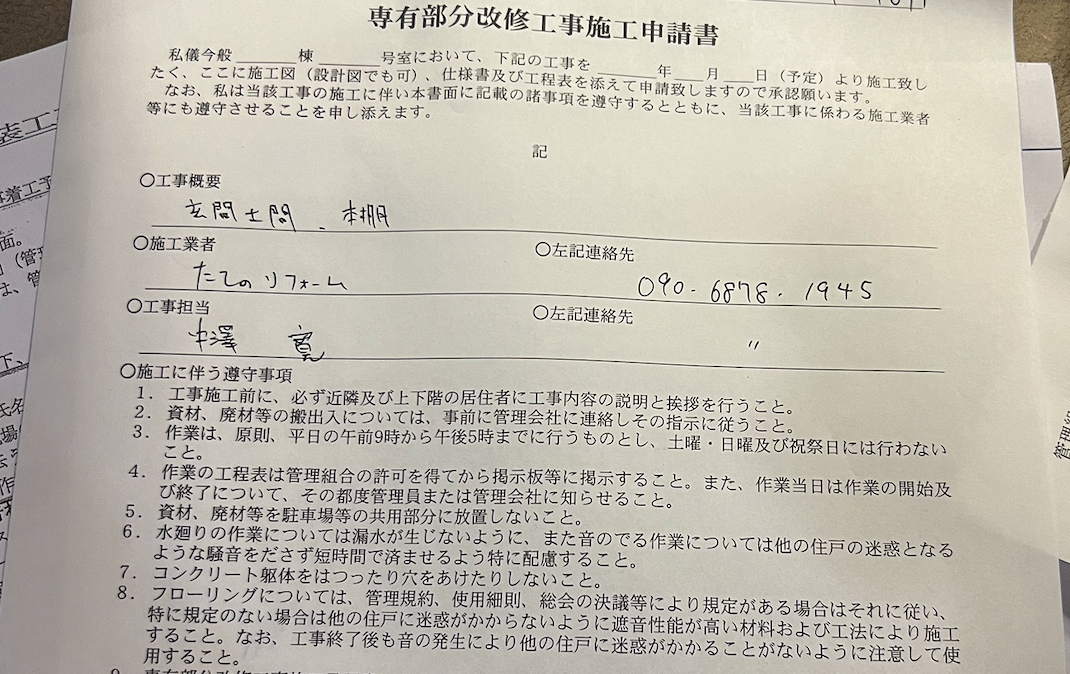 専有部分改修工事施工申請書
私儀今般　　　棟　　　号室において、下記の工事を　　　年　　月　　日（予定）より施工致し
たく、ここに施工図（設計図でも可）、仕様書及び工程表を添えて申請致しますので承認願います。
なお、私は当該工事の施工に伴い本書面に記載の諸事項を遵守するとともに、当該工事に係わる施工業者
等にも遵守させることを申し添えます。
記
〇工事概要
玄関土間、本棚
〇施工業者　〇左記連絡先
たてのリフォーム　090-6878-1945
〇工事担当　〇左記連絡先
中澤　寛　〃
〇施工に伴う遵守事項
1．工事施工前に、必ず近隣及び上下階の居住者に工事内容の説明と挨拶を行うこと。
2．資材、廃材等の搬出入については、事前に管理会社に連絡しその指示に従うこと。
3．作業は、原則、平日の午前9時から午後5時までに行うものとし、土曜・日曜及び祝祭日には行わない
こと。
4．作業の工程表は管理組合の許可を得てから掲示板等に掲示すること。また、作業当日は作業の開始及
び終了について、その都度管理員または管理会社に知らせること。
5．資材、廃材等を駐車場等の共用部分に放置しないこと。
6．水廻りの作業については漏水が生じないように、また音のでる作業については他の住戸の迷惑となる
ような騒音をださず短時間で済ませるよう特に配慮すること。
7．コンクリート躯体をはつったり穴をあけたりしないこと。
8．フローリングについては、管理規約、使用細則、総会の決議等により規定がある場合はそれに従い、
特に規定のない場合は他の住戸に迷惑がかからないように遮音性能が高い材料および工法により施工
すること。なお、工事終了後も音の発生により他の住戸に迷惑がかかることがないように注意して使
用すること。